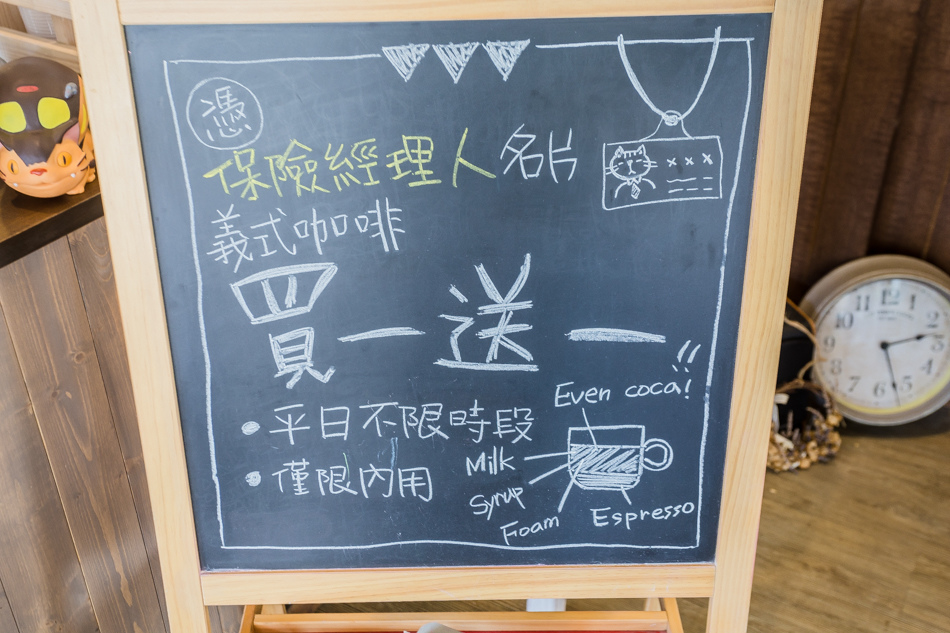 憑
保險經理人名片
xxx
義式咖啡
買一送一!!
• 平日不限時段
• 僅限內用
Even coca!
Milk
Syrup
Foam
Espresso
12
11
1
10
2
9
3
8
4
7
5
6